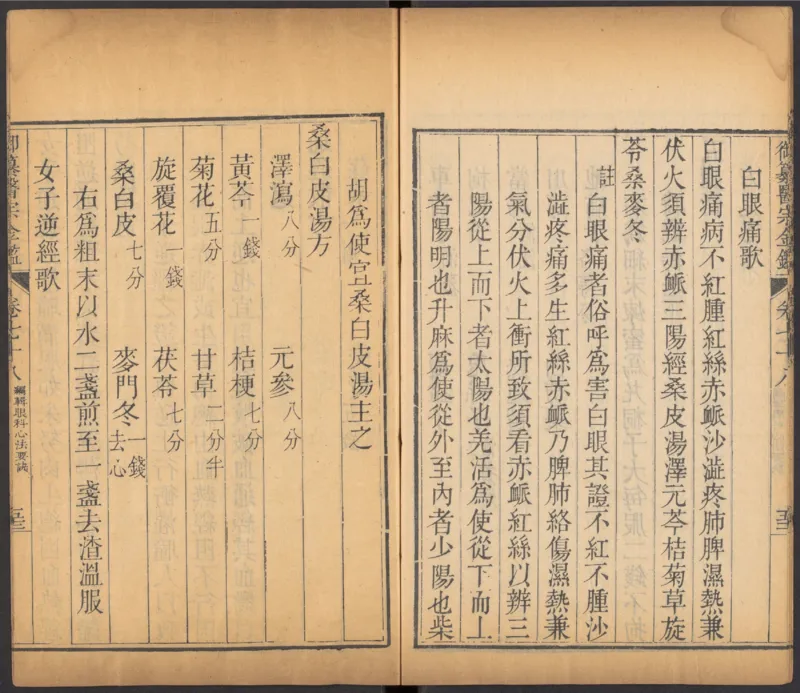 御纂醫宗金鑑 卷七十八
白眼痛歌
白眼痛病不紅腫紅絲赤脈沙澁疼肺脾濕熱兼
伏火須辨赤脈三陽經桑皮湯澤元芩桔菊草旋
苓桑麥冬
註白眼痛者俗呼爲害白眼其證不紅不腫沙
澁疼痛多生紅絲赤脈乃脾肺絡傷濕熱兼
氣分伏火上衝所致須看赤脈紅絲以辨三
陽從上而下者太陽也羌活爲使從下而上
者陽明也升麻爲使從外至內者少陽也柴
胡爲使宜桑白皮湯主之
桑白皮湯方
澤瀉八分 元參八分
黃芩一錢 桔梗七分
菊花五分 甘草二分半
旋覆花一錢 茯苓七分
桑白皮七分 麥門冬一錢去心
右爲粗末以水二盞煎至一盞去渣溫服
女子逆經歌
御纂醫宗金鑑 卷七十八 編輯眼科心法要訣 五三